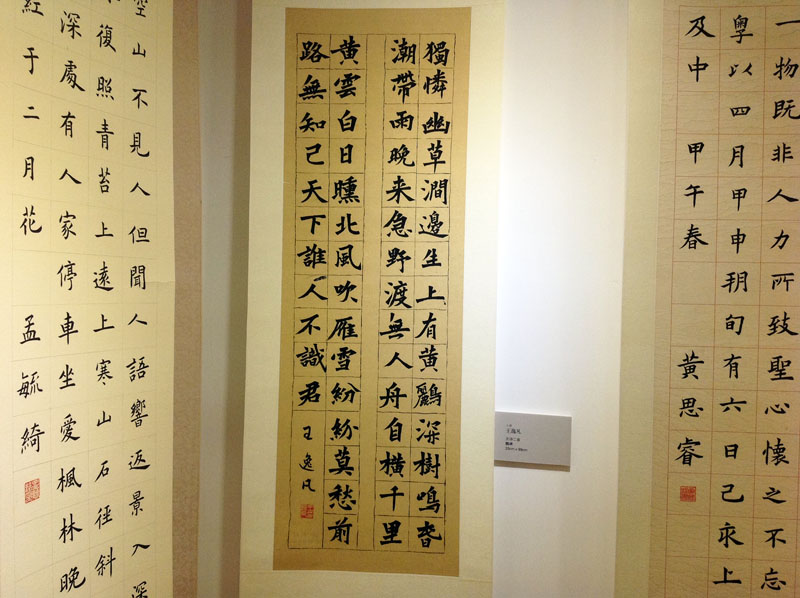 一物既非人力所致聖心懷之不忘
粤以四月甲申朔旬有六日己亥上
及中 甲午春 黃思睿
獨憐幽草澗邊生上有黄鸝深樹鳴春
潮帶雨晚来急野渡無人舟自横千里
黄雲白日曛北風吹雁雪紛紛莫愁前
路無知己天下誰人不識君 王逸凡
王逸凡
空山不見人但聞人語響返景入深
復照青苔上遠上寒山石徑斜
深處有人家停車坐愛楓林晚
紅于二月花 孟毓綺